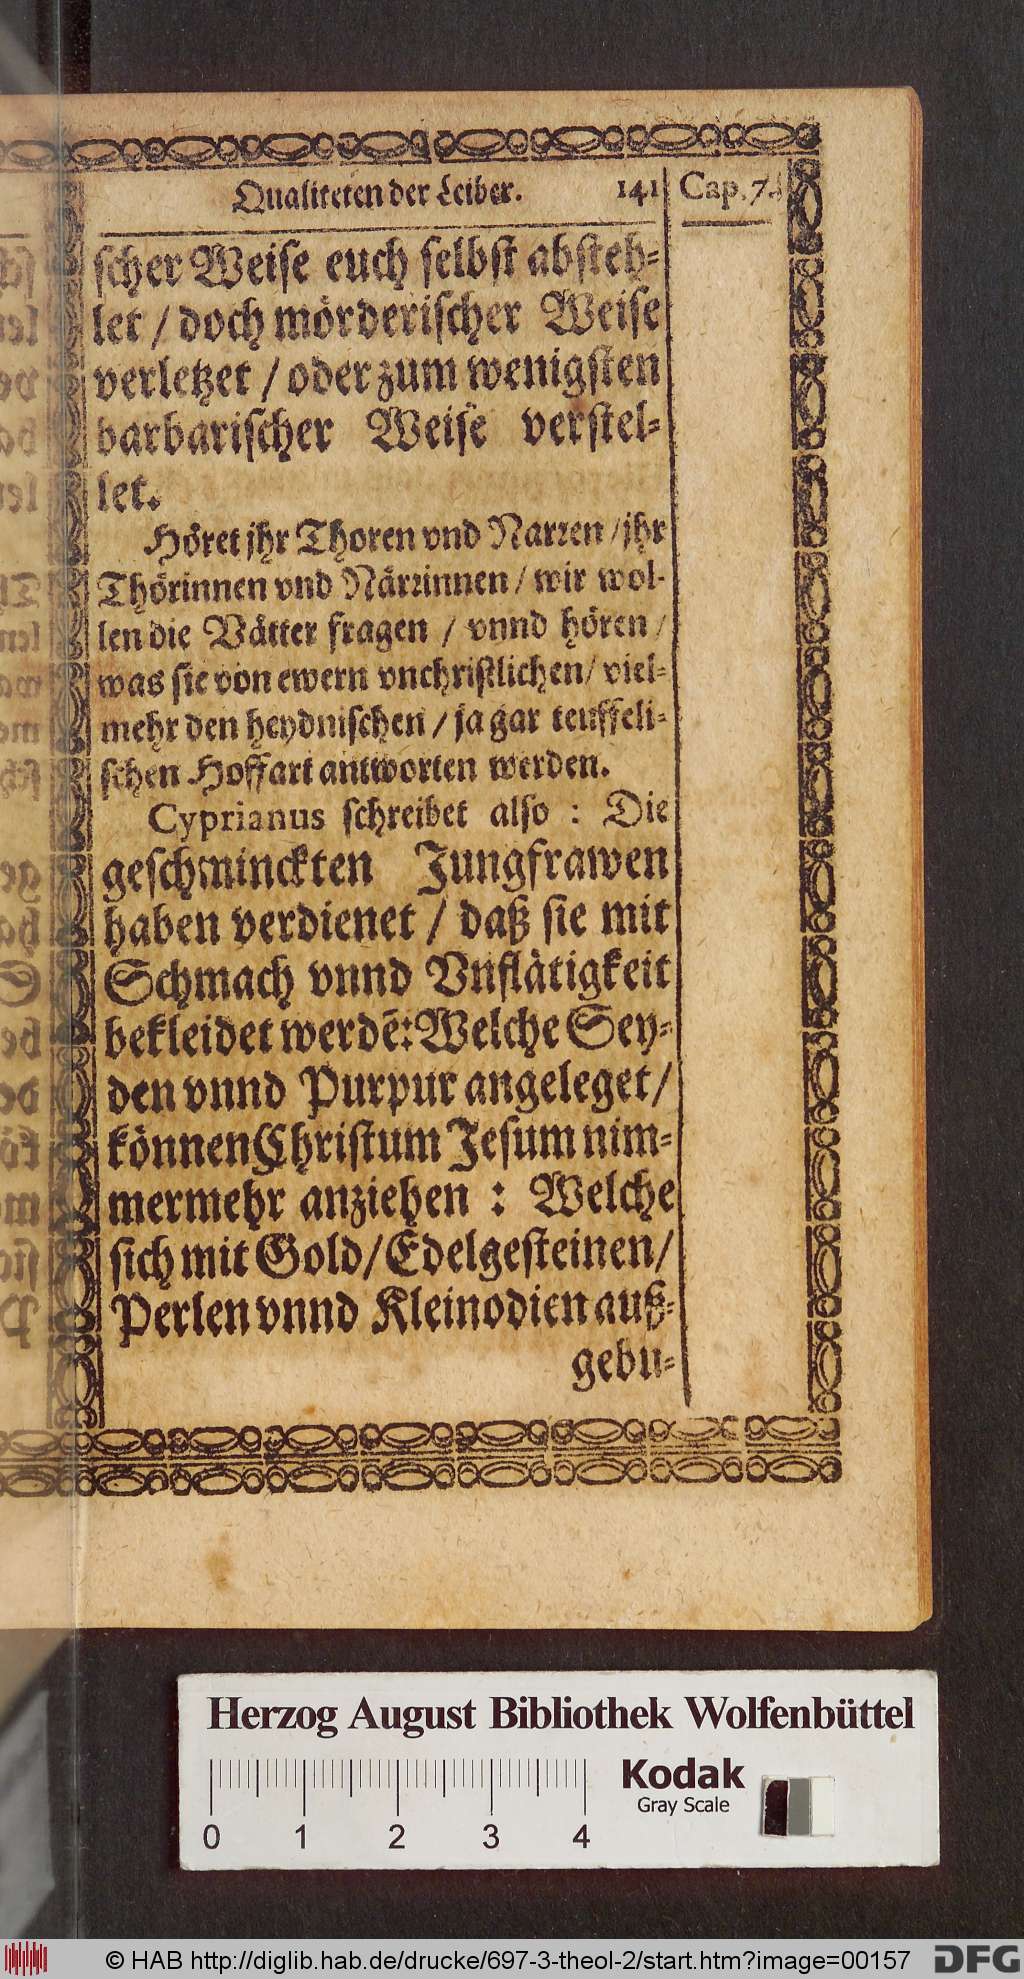 Qualiteten der Leiber. 141 Cap. 7.
scher Weise euch selbst absteh-
let / doch mörderischer Weise
verletzet / oder zum wenigsten
barbarischer Weise verstel-
let.
Höret jhr Thoren vnd Narren / jhr
Thörinnen vnd Närrinnen / wir wol-
len die Vätter fragen / vnnd hören /
was sie von ewern vnchristlichen / viel-
mehr den heydnischen / ja gar teuffeli-
schen Hoffart antworten werden.
Cyprianus schreibet also : Die
geschminckten Jungfrawen
haben verdienet / daß sie mit
Schmach vnnd Vnflätigkeit
bekleidet werdē: Welche Sey-
den vnnd Purpur angeleget /
können Christum Jesum nim-
mermehr anziehen : Welche
sich mit Gold / Edelgesteinen /
Perlen vnnd Kleinodien auß-
gebu-
Herzog August Bibliothek Wolfenbüttel
Kodak
Gray Scale
0 1 2 3 4
© HAB http://diglib.hab.de/drucke/697-3-theol-2/start.htm?image=00157 DFG